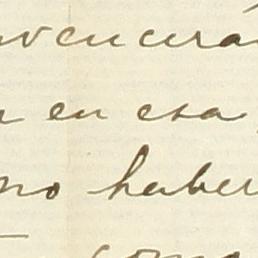 vencerá
en esa
no haber
como